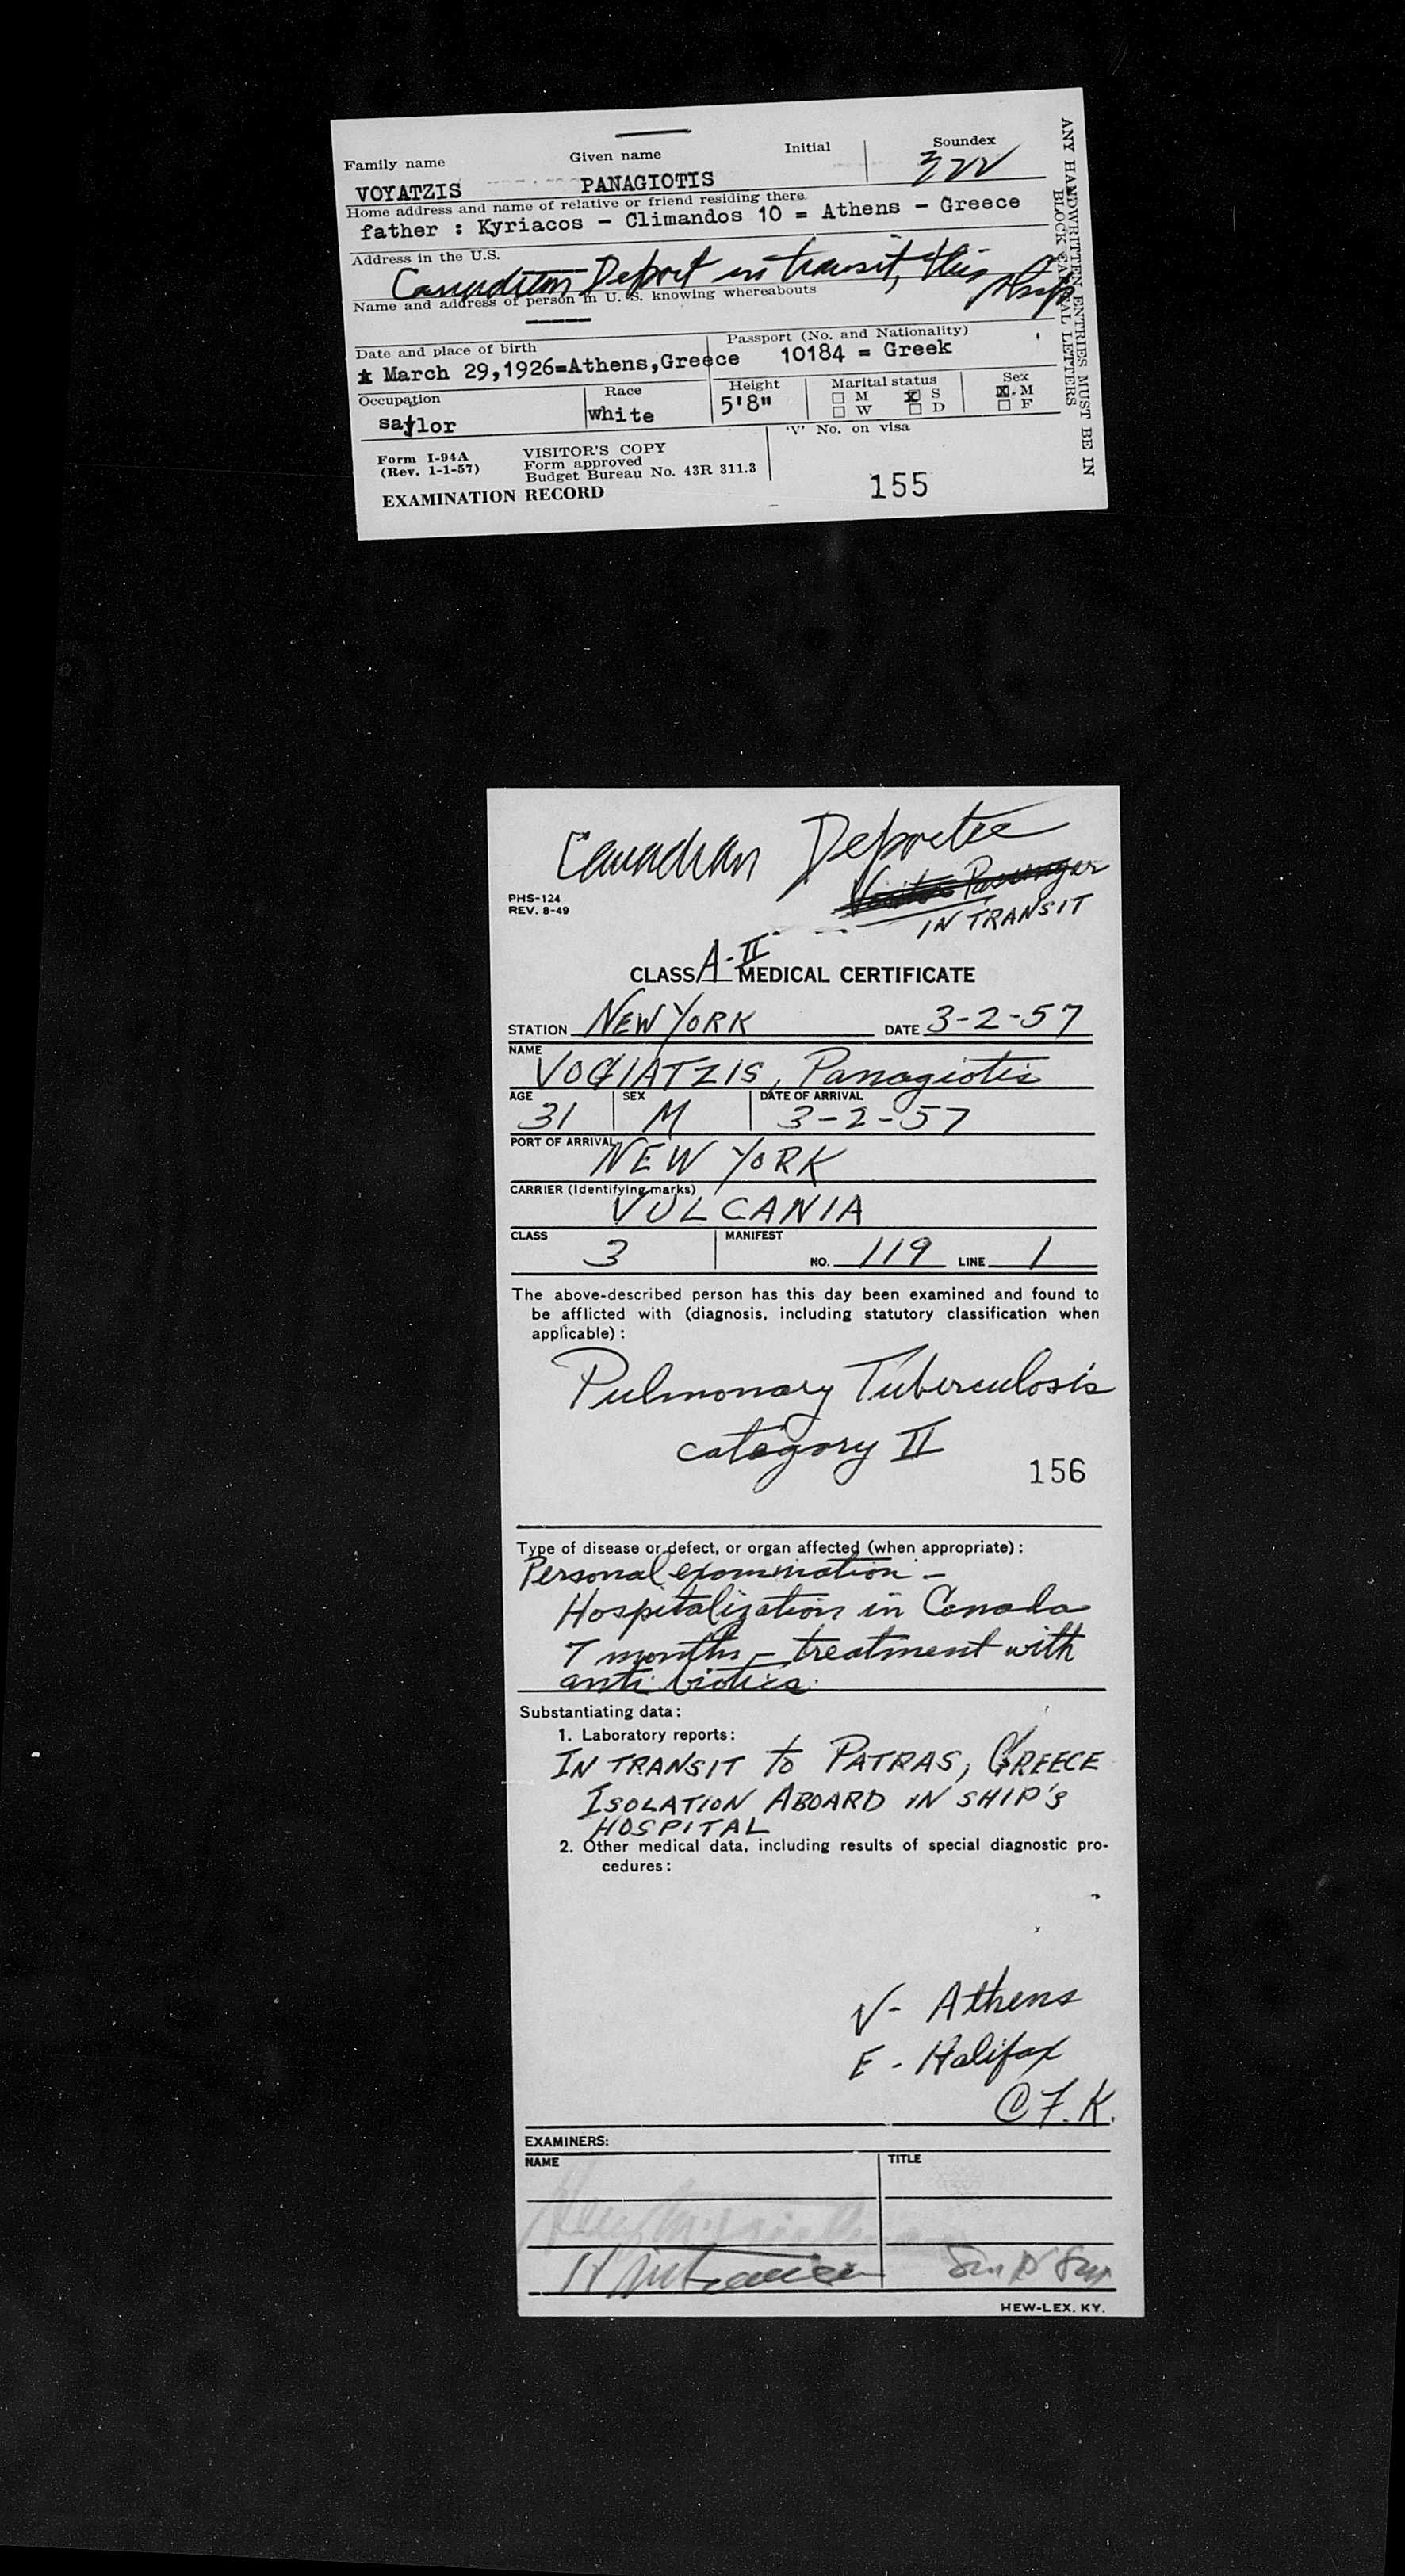 Family name Given name Initial Soundex
VOYATZIS PANAGIOTIS 322
Home address and name of relative or friend residing there
father : Kyriacos - Climandos 10 = Athens - Greece
Address in the U.S.
Canadian Deport in transit, this ship
Name and address of person in U. S. knowing whereabouts
Date and place of birth Passport (No. and Nationality)
March 29,1926=Athens,Greece 10184 = Greek
Occupation Race Height Marital status Sex
saylor white 5'8" M X S X M
W D F
Form I-94A
(Rev. 1-1-57)
VISITOR'S COPY
Form approved
Budget Bureau No. 43R 311.3
'V' No. on visa
EXAMINATION RECORD
155
ANY HANDWRITTEN ENTRIES MUST BE IN
BLOCK CAPITAL LETTERS
Canadian Deportee
Visitor Passenger
PHS-124
REV. 8-49
IN TRANSIT
CLASS A-II MEDICAL CERTIFICATE
STATION NEW YORK DATE 3-2-57
NAME
VOGIATZIS, Panagiotis
AGE SEX DATE OF ARRIVAL
31 M 3-2-57
PORT OF ARRIVAL
NEW YORK
CARRIER (Identifying marks)
VULCANIA
CLASS MANIFEST
3 NO. 119 LINE 1
The above-described person has this day been examined and found to
be afflicted with (diagnosis, including statutory classification when
applicable):
Pulmonary Tuberculosis
category II
156
Type of disease or defect, or organ affected (when appropriate):
Personal examination -
Hospitalization in Canada
7 months - treatment with
anti biotics.
Substantiating data:
1. Laboratory reports:
IN TRANSIT to PATRAS, GREECE
ISOLATION ABOARD IN SHIP'S
HOSPITAL
2. Other medical data, including results of special diagnostic pro-
cedures:
V- Athens
E - Halifax
C F. K.
EXAMINERS:
NAME TITLE
HEW-LEX. KY.